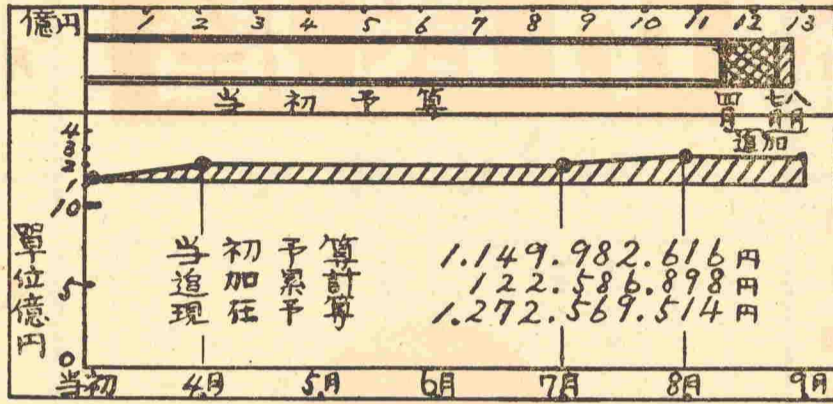 億円 1 2 3 4 5 6 7 8 9 10 11 12 13
当初予算
四月 七月 八月
追加
4
3
2
1
10
5
0
單位億円
当初予算 1.149.982.616円
追加累計 122.586.898円
現在予算 1.272.569.514円
当初 4月 5月 6月 7月 8月 9月